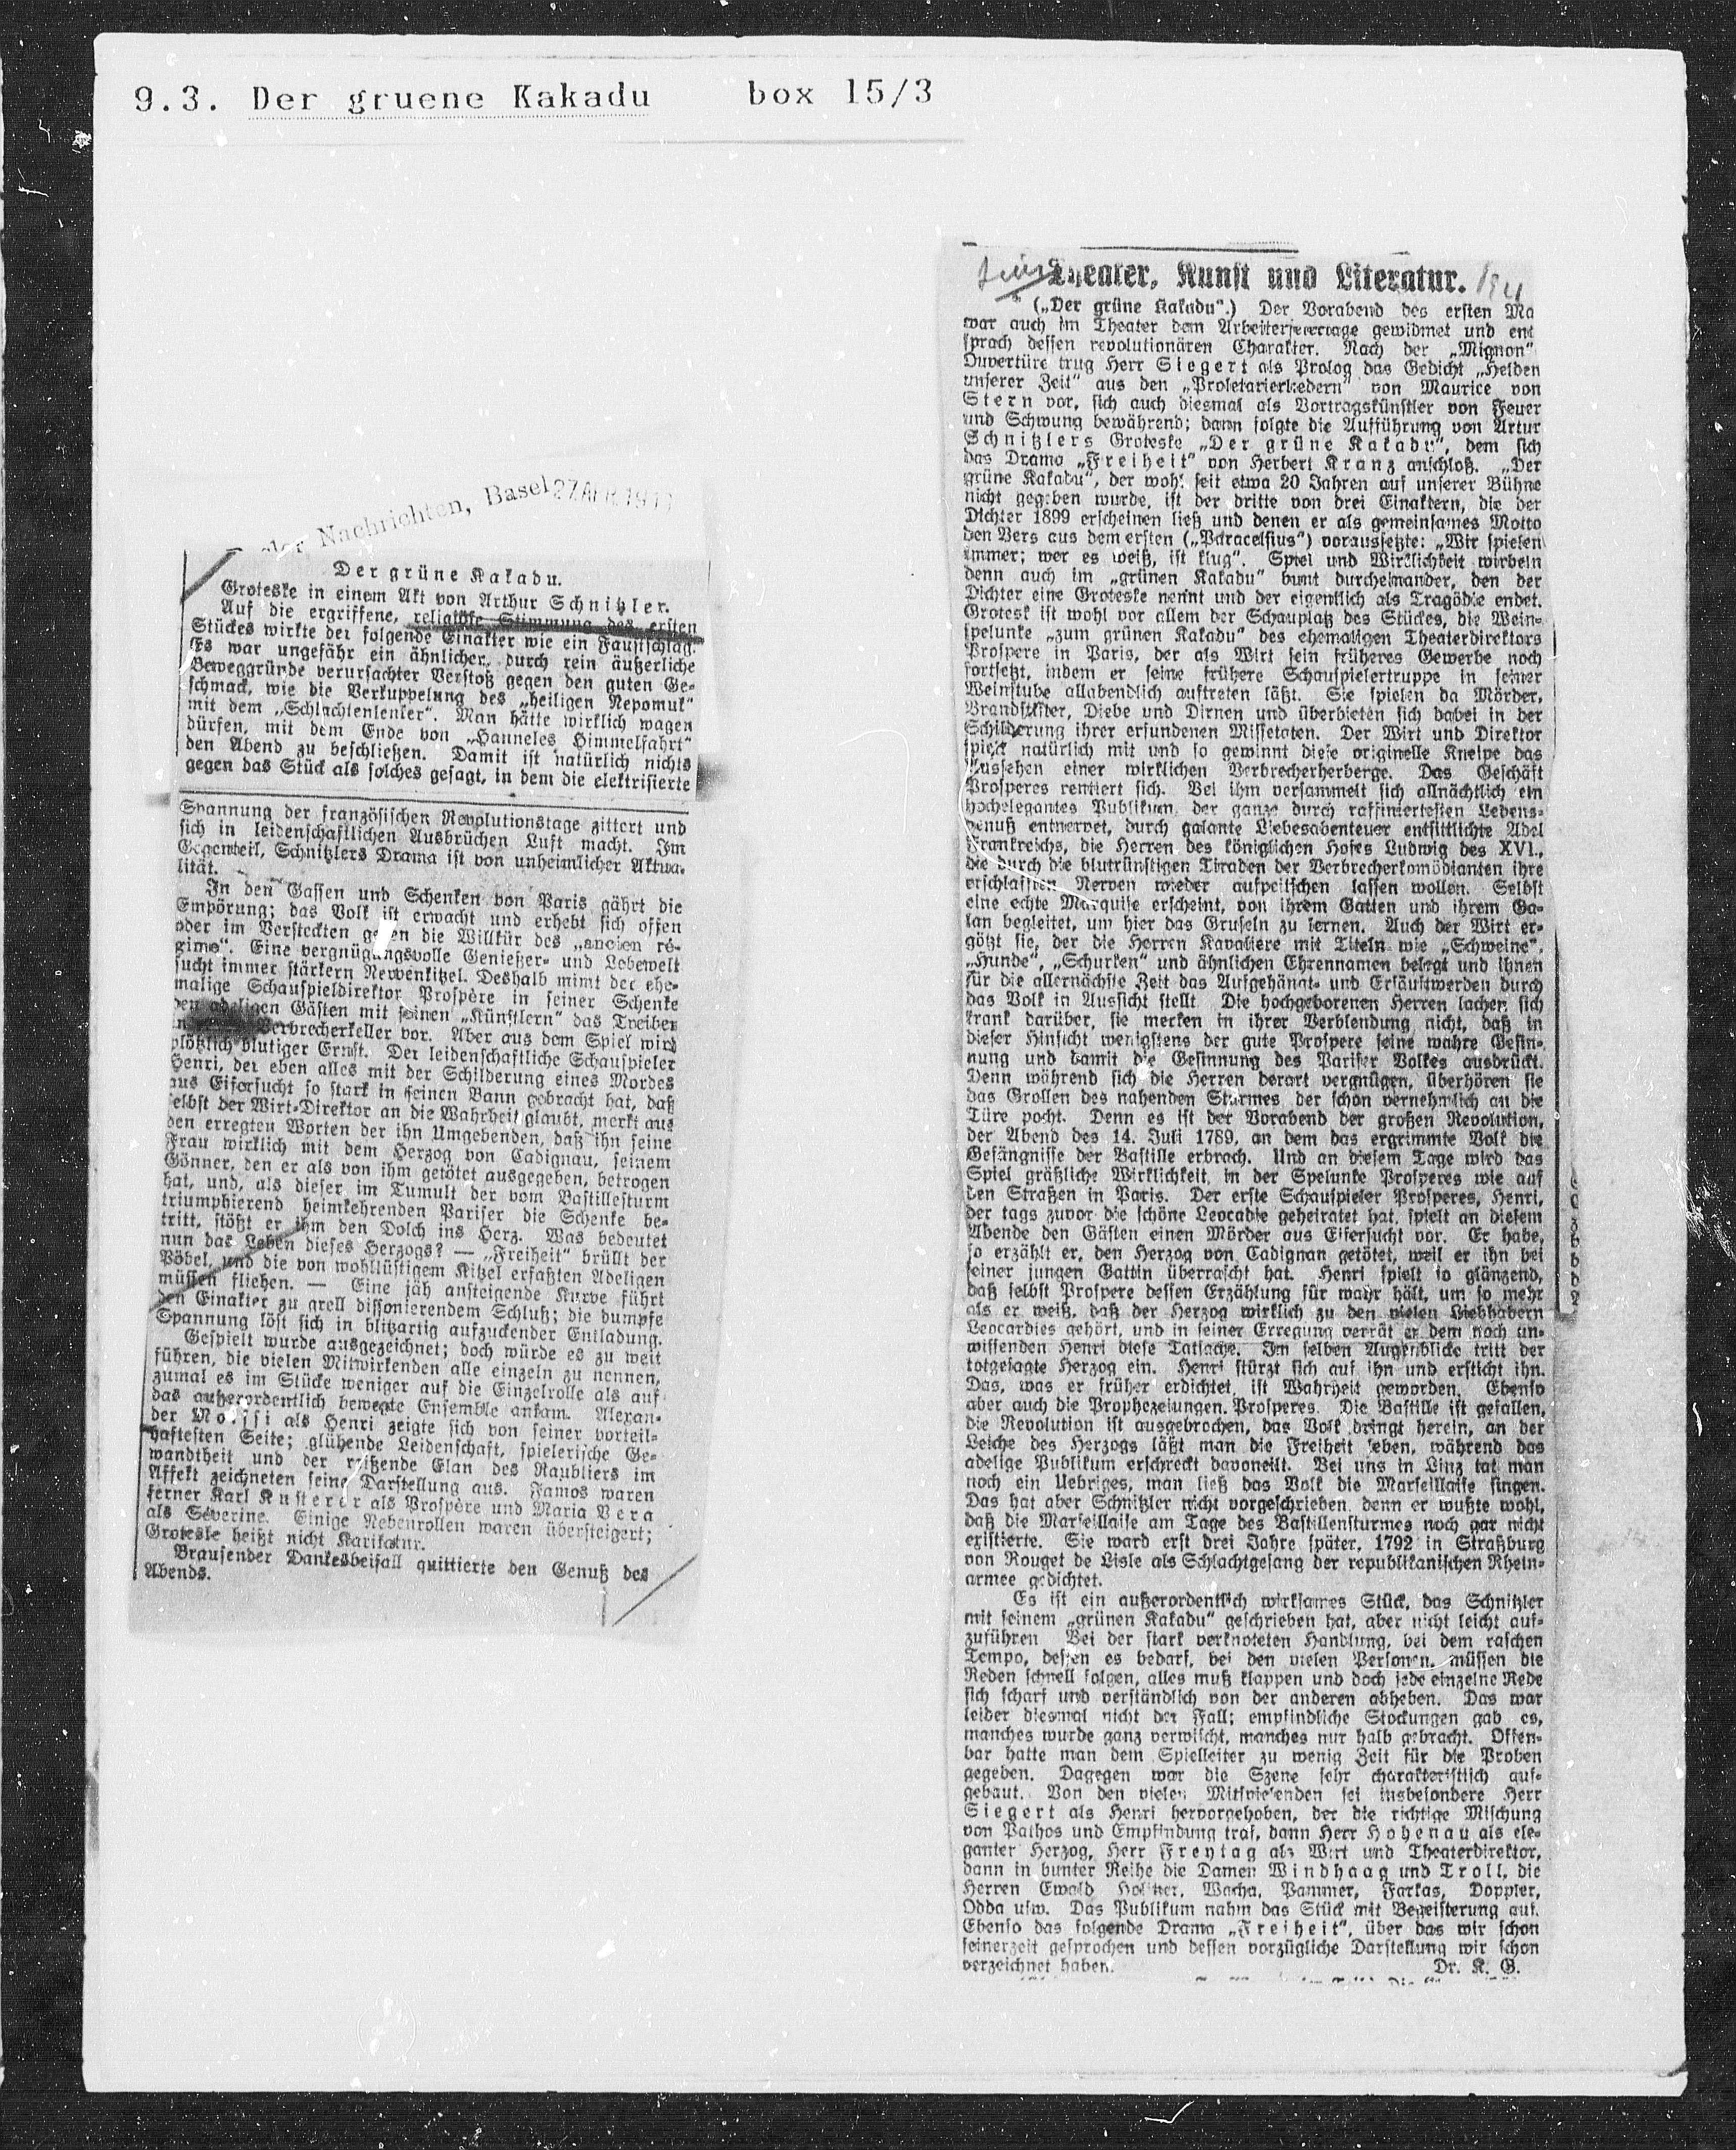 9.3. Der gruene Kakadu box 15/3
Nachrichten, Basel 27. APR. 191
Der grüne Kakadu.
Groteske in einem Akt von Arthur Schnitzler.
Auf die ergriffene, religiöse Stimmung des ersten
Stückes wirkte der folgende Einakter wie ein Faustschlag.
Es war ungefähr ein ähnlicher, durch rein äußerliche
Beweggründe verursachter Verstoß gegen den guten Ge-
schmack, wie die Verkuppelung des „heiligen Nepomuk“
mit dem „Schlachtenlenker“. Man hätte wirklich wagen
dürfen, mit dem Ende von „Hanneles Himmelfahrt“
den Abend zu beschließen. Damit ist natürlich nichts
gegen das Stück als solches gesagt, in dem die elektrisierte
Spannung der französischen Revolutionstage zittert und
sich in leidenschaftlichen Ausbrüchen Luft macht. Im
Gegenteil, Schnitzlers Drama ist von unheimlicher Aktua-
lität.
In den Gassen und Schenken von Paris gährt die
Empörung; das Volk ist erwacht und erhebt sich offen
oder im Versteckten gegen die Willkür des „ancien ré-
gime“. Eine vergnügungsvolle Genießer- und Lebewelt
sucht immer stärkern Nervenkitzel. Deshalb mimt der ehe-
malige Schauspieldirektor Prospère in seiner Schenke
den adeligen Gästen mit seinen „Künstlern“ das Treiben
in Verbrecherkeller vor. Aber aus dem Spiel wird
plötzlich blutiger Ernst. Der leidenschaftliche Schauspieler
Henri, der eben alles mit der Schilderung eines Mordes
aus Eifersucht so stark in seinen Bann gebracht hat, daß
selbst der Wirt-Direktor an die Wahrheit glaubt, merkt aus
den erregten Worten der ihn Umgebenden, daß ihn seine
Frau wirklich mit dem Herzog von Cadignau, seinem
Gönner, den er als von ihm getötet ausgegeben, betrogen
hat, und, als dieser im Tumult der vom Bastillesturm
triumphierend heimkehrenden Pariser die Schenke be-
tritt, stößt er ihm den Dolch ins Herz. Was bedeutet
nun das Leben dieses Herzogs? — „Freiheit“ brüllt der
Pöbel, und die von wohllüstigem Kitzel erfaßten Adeligen
müssen fliehen. — Eine jäh ansteigende Kurve führt
den Einakter zu grell dissonierendem Schluß; die dumpfe
Spannung löst sich in blitzartig aufzuckender Entladung.
Gespielt wurde ausgezeichnet; doch würde es zu weit
führen, die vielen Mitwirkenden alle einzeln zu nennen,
zumal es im Stücke weniger auf die Einzelrolle als auf
das außerordentlich bewegte Ensemble ankam. Alexan-
der Moissi als Henri zeigte sich von seiner vorteil-
haftesten Seite; glühende Leidenschaft, spielerische Ge-
wandtheit und der reißende Elan des Raubtiers im
Affekt zeichneten seine Darstellung aus. Famos waren
ferner Karl Kusterer als Prospère und Maria Vera
als Séverine. Einige Nebenrollen waren übersteigert;
Groteske heißt nicht Karikatur.
Brausender Dankesbeifall quittierte den Genuß des
Abends.
Theater, Kunst und Literatur.
(„Der grüne Kakadu“.) Der Vorabend des ersten Ma
war auch im Theater dem Arbeiterfeiertage gewidmet und ent
sprach dessen revolutionären Charakter. Nach der „Mignon“
Ouvertüre trug Herr Siegert als Prolog das Gedicht „Helden
unserer Zeit“ aus den „Proletarierliedern“ von Maurice von
Stern vor, sich auch diesmal als Vortragskünstler von Feuer
und Schwung bewährend; dann folgte die Aufführung von Artur
Schnitzlers Groteske „Der grüne Kakadu“, dem sich
das Drama „Freiheit“ von Herbert Kranz anschloß. „Der
grüne Kakadu“, der wohl seit etwa 20 Jahren auf unserer Bühne
nicht gegeben wurde, ist der dritte von drei Einaktern, die der
Dichter 1899 erscheinen ließ und denen er als gemeinsames Motto
den Vers aus dem ersten („Paracelsius“) voraussetzte: „Wir spielen
immer; wer es weiß, ist klug“. Spiel und Wirklichkeit wirbeln
denn auch im „grünen Kakadu“ bunt durcheinander, den der
Dichter eine Groteske nennt und der eigentlich als Tragödie endet.
Grotesk ist wohl vor allem der Schauplatz des Stückes, die Wein-
spelunke „zum grünen Kakadu“ des ehemaligen Theaterdirektors
Prospere in Paris, der als Wirt sein früheres Gewerbe noch
fortsetzt, indem er seine frühere Schauspielertruppe in seiner
Weinstube allabendlich auftreten läßt. Sie spielen da Mörder,
Brandstifter, Diebe und Dirnen und überbieten sich dabei in der
Schilderung ihrer erfundenen Missetaten. Der Wirt und Direktor
spielt natürlich mit und so gewinnt diese originelle Kneipe das
Aussehen einer wirklichen Verbrecherherberge. Das Geschäft
Prosperes rentiert sich. Bei ihm versammelt sich allnächtlich ein
hochelegantes Publikum, der ganze durch raffiniertesten Lebens-
genuß entnervet, durch galante Liebesabenteuer entsittlichte Adel
Frankreichs, die Herren des königlichen Hofes Ludwig des XVI.,
die durch die blutrünstigen Tiraden der Verbrecherkomödianten ihre
erschlafften Nerven wieder aufpeitschen lassen wollen. Selbst
eine echte Marquise erscheint, von ihrem Gatten und ihrem Ga-
lan begleitet, um hier das Gruseln zu lernen. Auch der Wirt er-
götzt sie, der die Herren Kavaliere mit Titeln wie „Schweine“,
„Hunde“, „Schurken“ und ähnlichen Ehrennamen belegt und ihnen
für die allernächste Zeit das Aufgehängt- und Ersäuftwerden durch
das Volk in Aussicht stellt. Die hochgeborenen Herren lachen sich
krank darüber, sie merken in ihrer Verblendung nicht, daß in
dieser Hinsicht wenigstens der gute Prospere seine wahre Gesin-
nung und damit die Gesinnung des Pariser Volkes ausdrückt.
Denn während sich die Herren derart vergnügen, überhören sie
das Grollen des nahenden Sturmes, der schon vernehmlich an die
Türe pocht. Denn es ist der Vorabend der großen Revolution,
der Abend des 14. Juli 1789, an dem das ergrimmte Volk die
Gefängnisse der Bastille erbrach. Und an diesem Tage wird das
Spiel gräßliche Wirklichkeit, in der Spelunke Prosperes wie auf
den Straßen in Paris. Der erste Schauspieler Prosperes, Henri,
der tags zuvor die schöne Leocadie geheiratet hat, spielt an diesem
Abende den Gästen einen Mörder aus Eifersucht vor. Er habe,
so erzählt er, den Herzog von Cadignan getötet, weil er ihn bei
seiner jungen Gattin überrascht hat. Henri spielt so glänzend,
daß selbst Prospere dessen Erzählung für wahr hält, um so mehr
als er weiß, daß der Herzog wirklich zu den vielen Liebhabern
Leocardies gehört, und in seiner Erregung verrät er dem noch un-
wissenden Henri diese Tatsache. Im selben Augenblicke tritt der
totgesagte Herzog ein. Henri stürzt sich auf ihn und ersticht ihn.
Das, was er früher erdichtet, ist Wahrheit geworden. Ebenso
aber auch die Prophezeiungen Prosperes. Die Bastille ist gefallen,
die Revolution ist ausgebrochen, das Volk dringt herein, an der
Leiche des Herzogs läßt man die Freiheit leben, während das
adelige Publikum erschreckt davoneilt. Bei uns in Linz tat man
noch ein Uebriges, man ließ das Volk die Marseillaise singen.
Das hat aber Schnitzler nicht vorgeschrieben, denn er wußte wohl,
daß die Marseillaise am Tage des Bastillensturmes noch gar nicht
existierte. Sie ward erst drei Jahre später, 1792 in Straßburg
von Rouget de Lisle als Schlachtgesang der republikanischen Rhein-
armee gedichtet.
Es ist ein außerordentlich wirksames Stück, das Schnitzler
mit seinem „grünen Kakadu“ geschrieben hat, aber nicht leicht auf-
zuführen. Bei der stark verknoteten Handlung, bei dem raschen
Tempo, dessen es bedarf, bei den vielen Personen, müssen die
Reden schnell folgen, alles muß klappen und doch jede einzelne Rede
sich scharf und verständlich von der anderen abheben. Das war
leider diesmal nicht der Fall; empfindliche Stockungen gab es,
manches wurde ganz verwischt, manches nur halb gebracht. Offen-
bar hatte man dem Spielleiter zu wenig Zeit für die Proben
gegeben. Dagegen war die Szene sehr charakteristisch auf-
gebaut. Von den vielen Mitspielenden sei insbesondere Herr
Siegert als Henri hervorgehoben, der die richtige Mischung
von Pathos und Empfindung traf, dann Herr Hohenau als ele-
ganter Herzog, Herr Freytag als Wirt und Theaterdirektor,
dann in bunter Reihe die Damen Windhaag und Troll, die
Herren Ewald, Wacha, Pammer, Farkas, Doppler,
Odda usw. Das Publikum nahm das Stück mit Begeisterung auf.
Ebenso das folgende Drama „Freiheit“, über das wir schon
seinerzeit gesprochen und dessen vorzügliche Darstellung wir schon
verzeichnet haben. Dr. K. G.